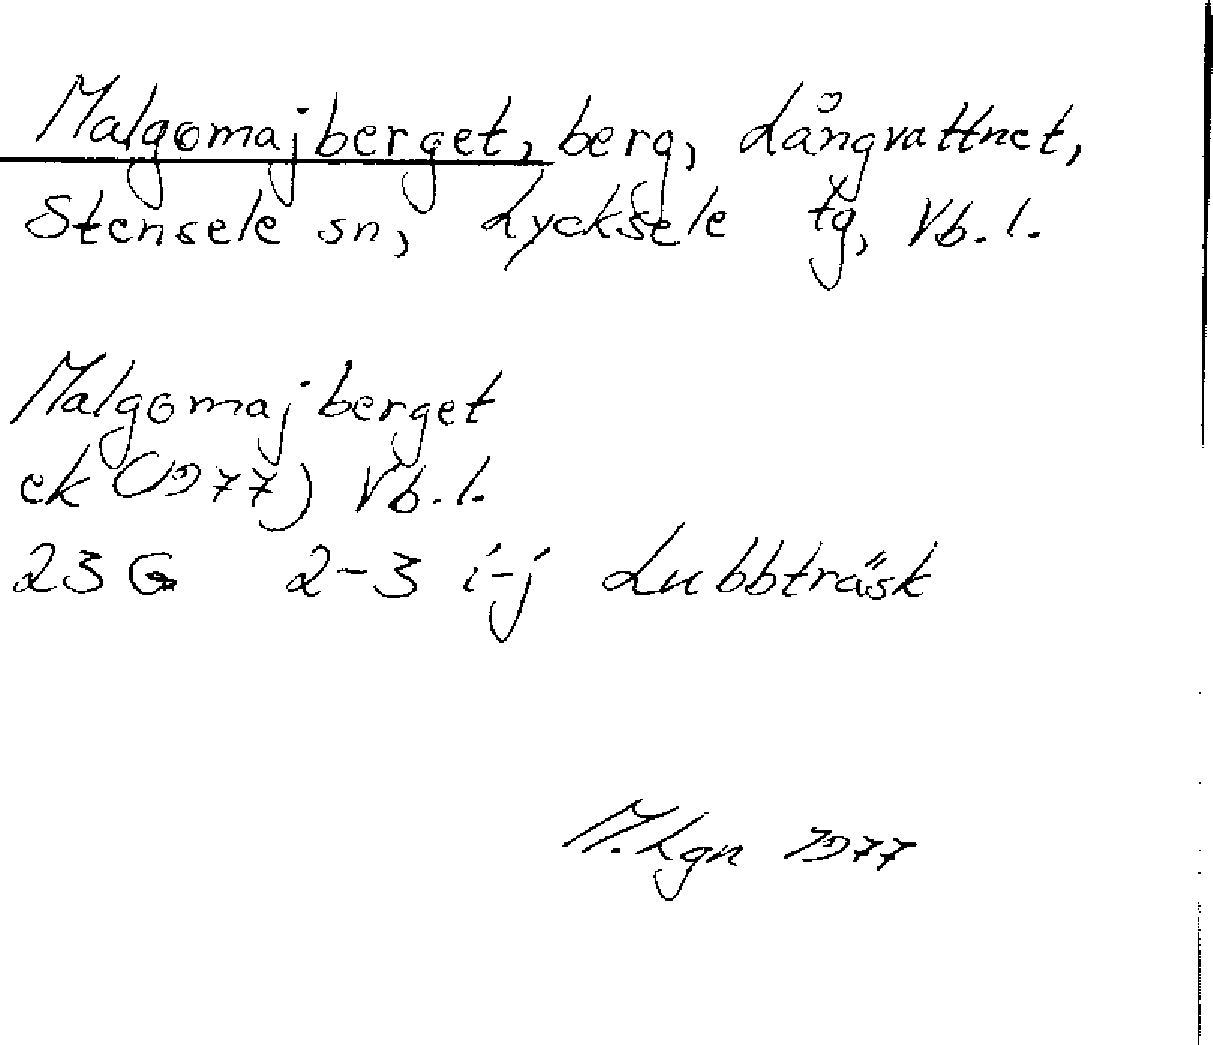 Malgomajberget, berg, Långvattnet,
Stensele sn, Lycksele tg, Vb. l.
Malgomajberget
ek (1977) Vb. l.
23 G 2-3 i-j Lubbträsk
M. Lgn 1977